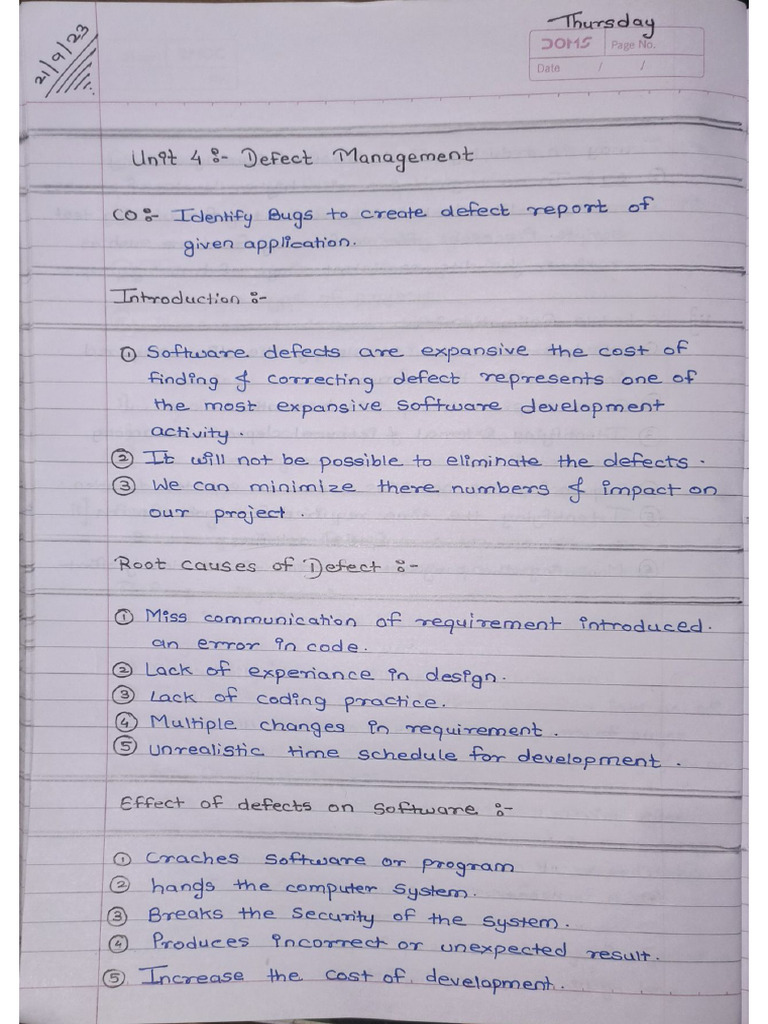 Thursday
21/9/23
DOMS Page No.
Date / /
Unit 4 :- Defect Management
CO :- Identify Bugs to create defect report of
given application.
Introduction :-
① Software defects are expansive the cost of
finding & correcting defect represents one of
the most expansive software development
activity.
② It will not be possible to eliminate the defects.
③ We can minimize there numbers & impact on
our project.
Root causes of Defect :-
① Miss communication of requirement introduced.
an error in code.
② Lack of experiance in design.
③ Lack of coding practice.
④ Multiple changes in requirement.
⑤ unrealistic time schedule for development.
Effect of defects on software :-
① Craches software or program
② hangs the computer system.
③ Breaks the security of the system.
④ Produces incorrect or unexpected result.
⑤ Increase the cost of development.